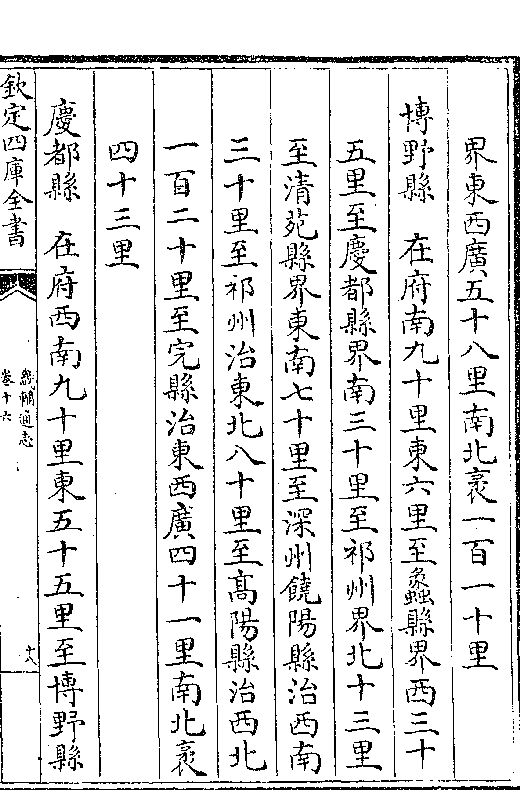 界東西廣五十八里南北袤一百一十里
博野縣　在府南九十里東六里至蠡縣界西三十
五里至慶都縣界南三十里至祁州界北十三里
至清苑縣界東南七十里至深州饒陽縣治西南
三十里至祁州治東北八十里至高陽縣治西北
一百二十里至完縣治東西廣四十一里南北袤
四十三里
慶都縣　在府西南九十里東五十五里至博野縣
欽定四庫全書
畿輔通志
卷十六
十八